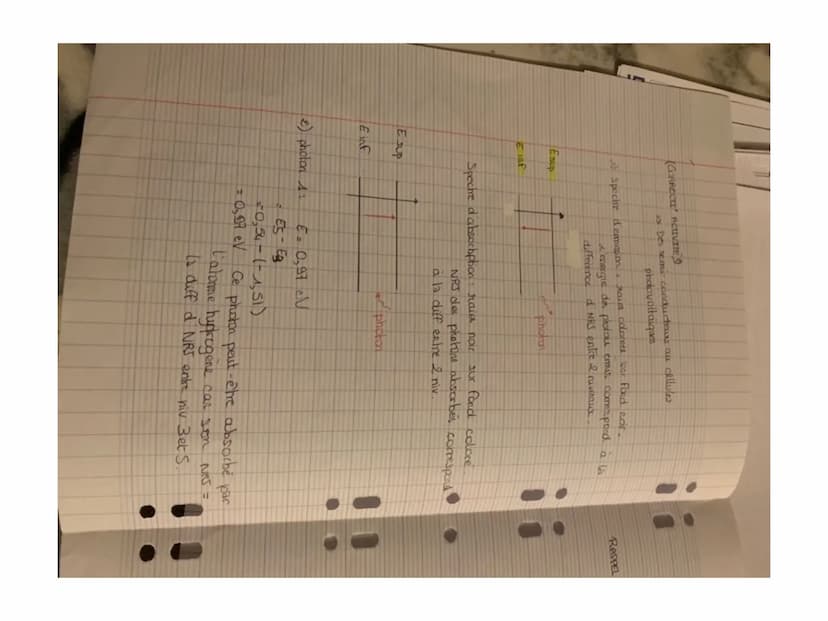 Correct° Activité 9
→ Des semi conducteurs au cellules
photovoltaïques
1) Spectre d'émission : raies colorées sur fond noir.
L'énergie des photons émis correspond à la
différence d NRJ entre 2 niveaux.
E sup
E inf
photon
Spectre d'absorbption : raies noir sur fond coloré
NRJ des photons absorbés correspond
à la diff entre 2 niv.
E sup
E inf
photon
2) photon 1 : E = 0,97 eV
= E5 - E3
= 0,54 - (-1,51)
= 0,97 eV Ce photon peut-être absorbé par
l'atome hydrogène car son NRJ =
la diff d NRJ entre niv 3 et 5.